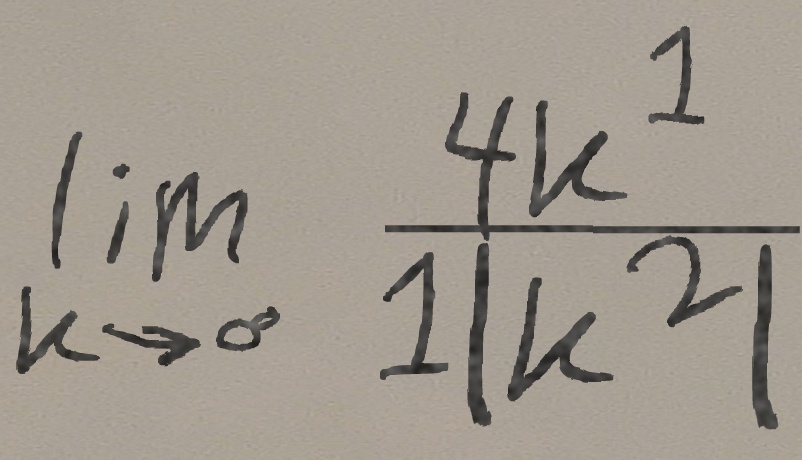 \lim_{k \to \infty} \frac{4k^1}{1|k^2|}